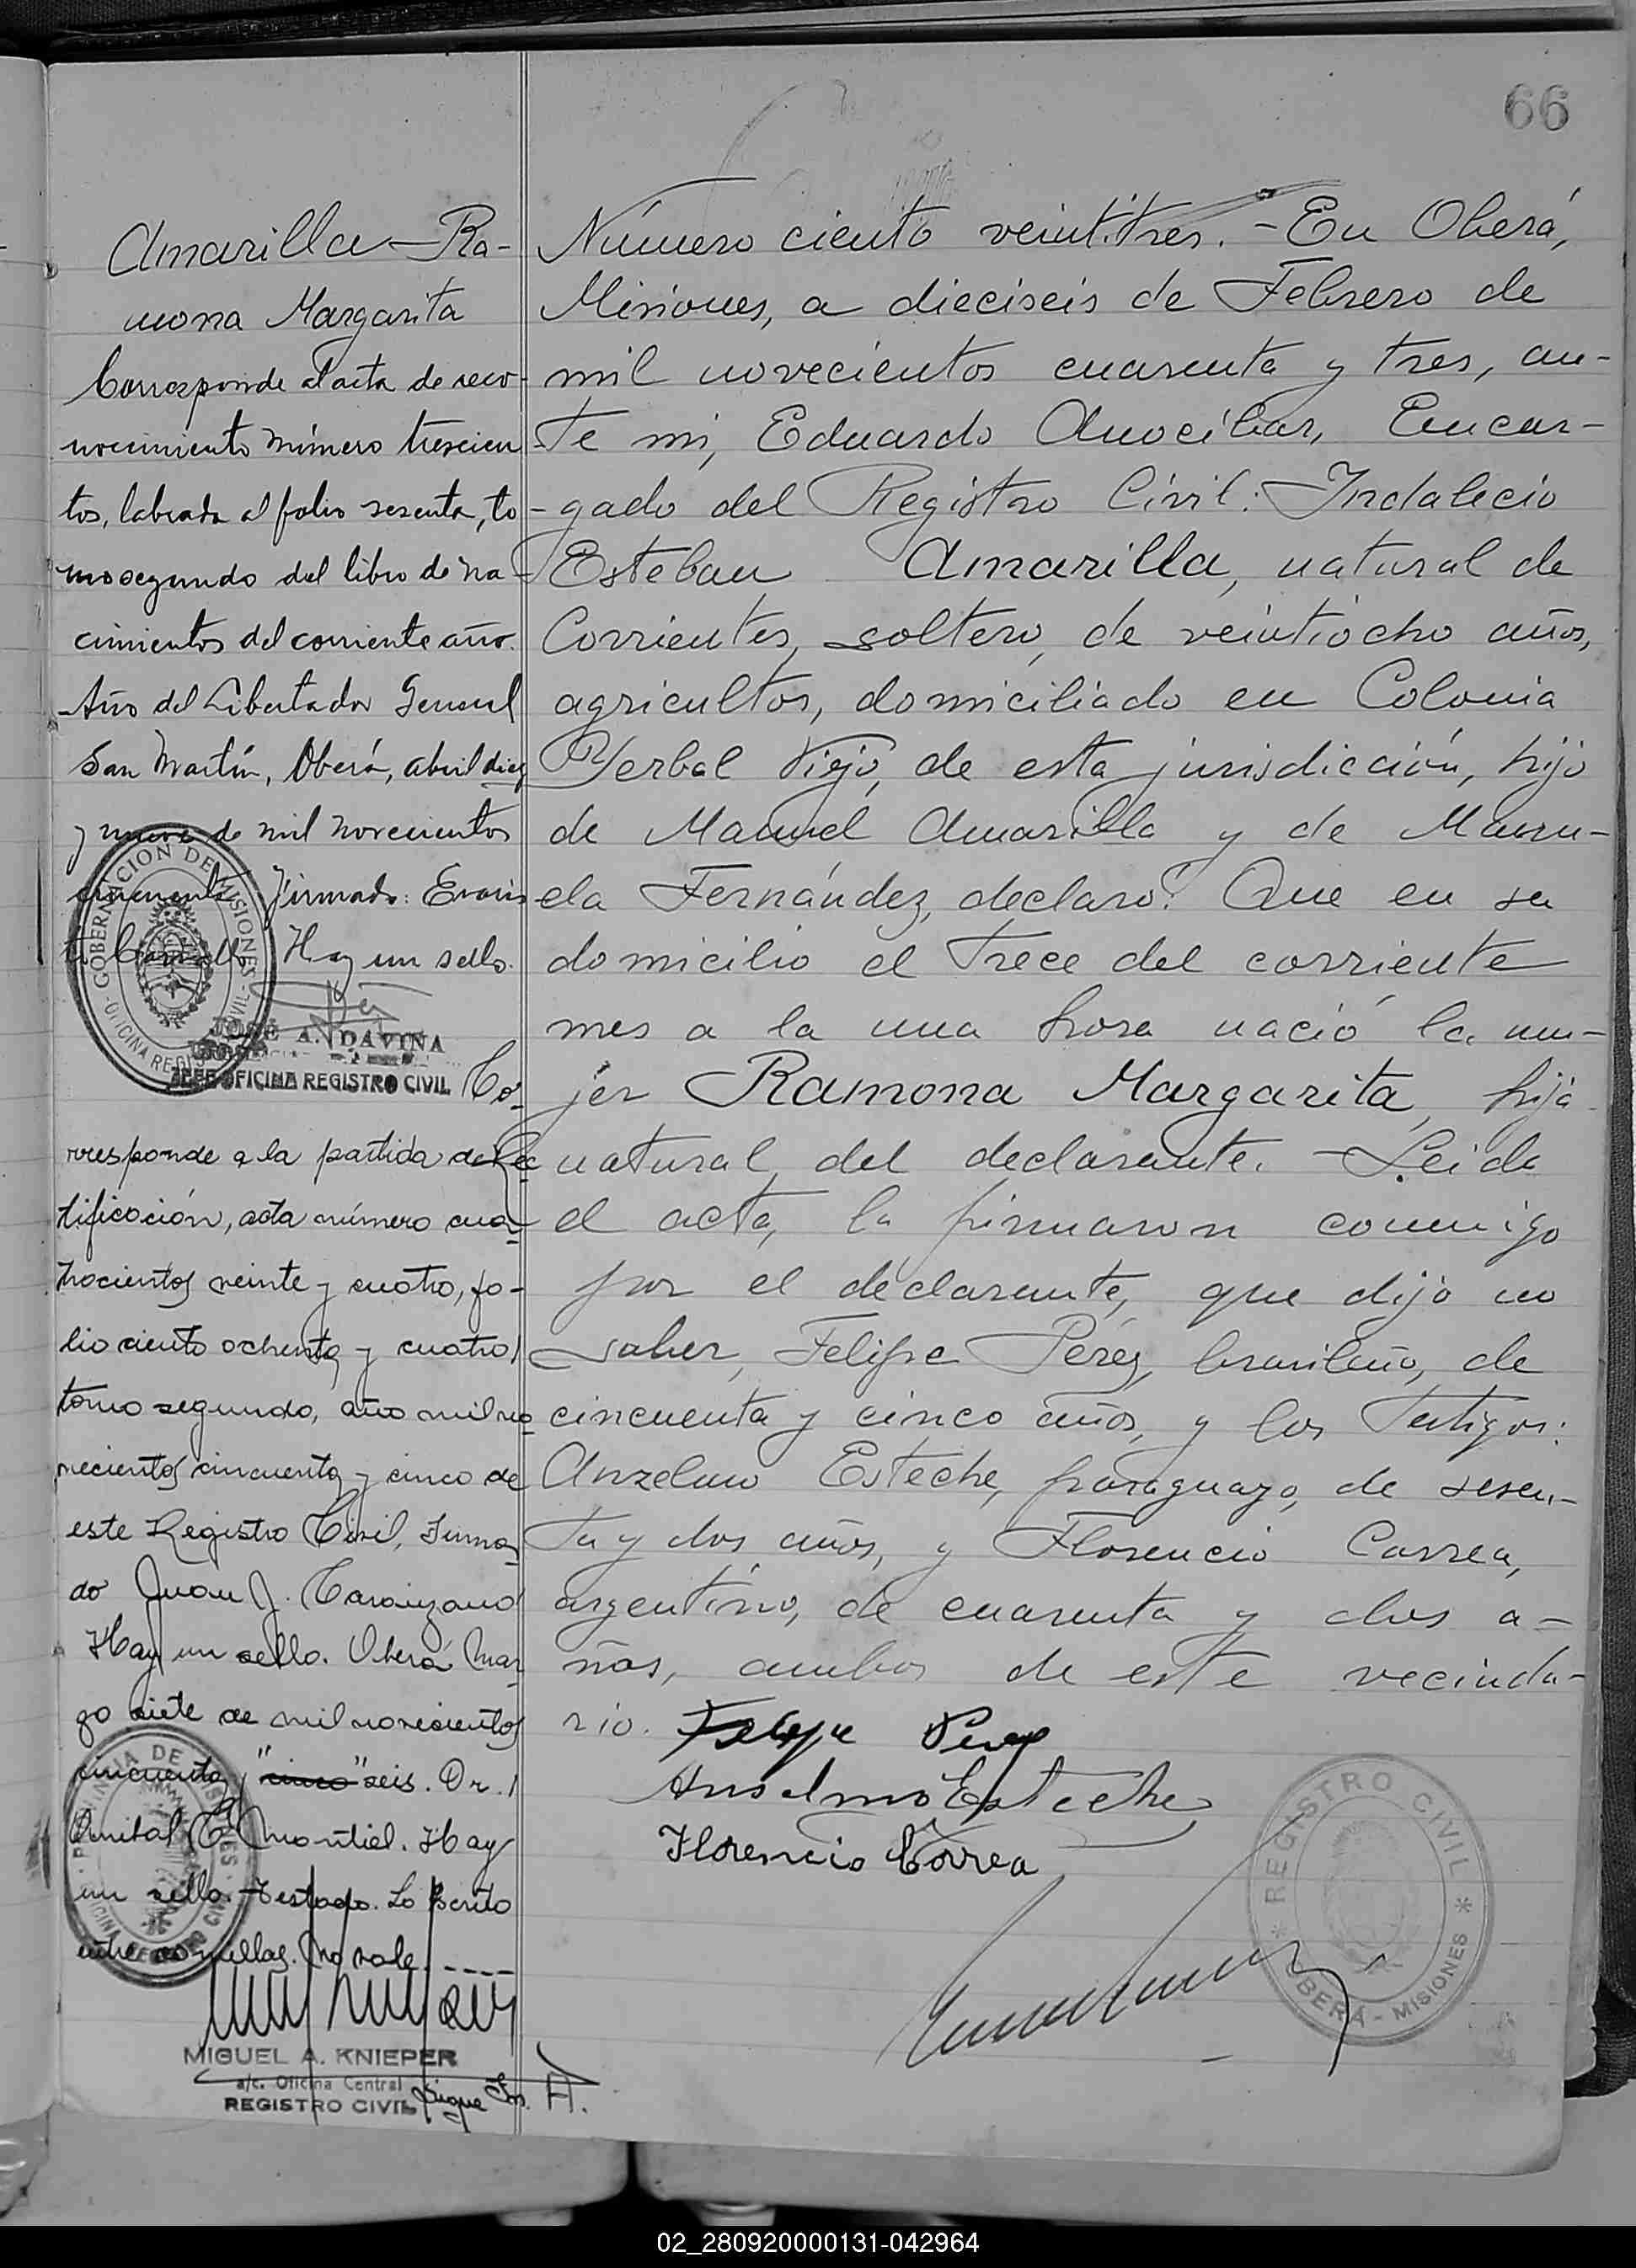 66
Amarilla — Ra-
mona Margarita
Corresponde al acta de reco-
nocimiento número trescien
tos, labrada al folio sesenta, to-
mo segundo del libro de na-
cimientos del corriente año.
Año del Libertador General
San Martín, Oberá, abril diez
y nueve de mil novecientos
cincuenta. Firmado: Evaris
to Hay un sello.
GOBERNACION DE MISIONES
OFICINA REGISTRO CIVIL
JOSE A. DAVIÑA
JEFE OFICINA REGISTRO CIVIL
Co-
rresponde a la partida de Rec
tificación, acta número cua-
trocientos veinte y cuatro, fo-
lio ciento ochenta y cuatro,
tomo segundo, año mil no-
vecientos cincuenta y cinco de
este Registro Civil, Firma-
do Juan J.
Hay un sello. Oberá Mar-
zo siete de mil novecientos
cincuenta y "cinco" seis. Dr.
Anibal C. Montiel. Hay
un sello. Testado. Lo Escrito
entre comillas. No vale. ----
PROVINCIA DE MISIONES
OFICINA REGISTRO CIVIL
MIGUEL A. KNIEPER
a/c. Oficina Central
REGISTRO CIVIL
Sigue A.
Número ciento veintitres. - En Oberá,
Misiones, a dieciseis de Febrero de
mil novecientos cuarenta y tres, an-
te mi, Eduardo Anocíbar, Encar-
gado del Registro Civil: Indalecio
Esteban Amarilla, natural de
Corrientes, soltero, de veintiocho años,
agricultor, domiciliado en Colonia
Yerbal Viejo, de esta jurisdicción, hijo
de Manuel Amarilla y de Manu-
ela Fernández, declaró: Que en su
domicilio el trece del corriente
mes a la una hora nació la mu-
jer Ramona Margarita, hija
natural del declarante. - Leida
el acta, la firmaron conmigo
por el declarante, que dijo no
saber, Felipe Pérez, brasileño, de
cincuenta y cinco años, y los testigos:
Anzelmo Esteche, paraguayo, de sesen-
ta y dos años, y Florencio Correa,
argentino, de cuarenta y dos a-
ños, ambos de este vecinda-
rio. Felipe Perez
Anselmo Esteche
Florencio Correa
REGISTRO CIVIL
OBERÁ - MISIONES
02_280920000131-042964